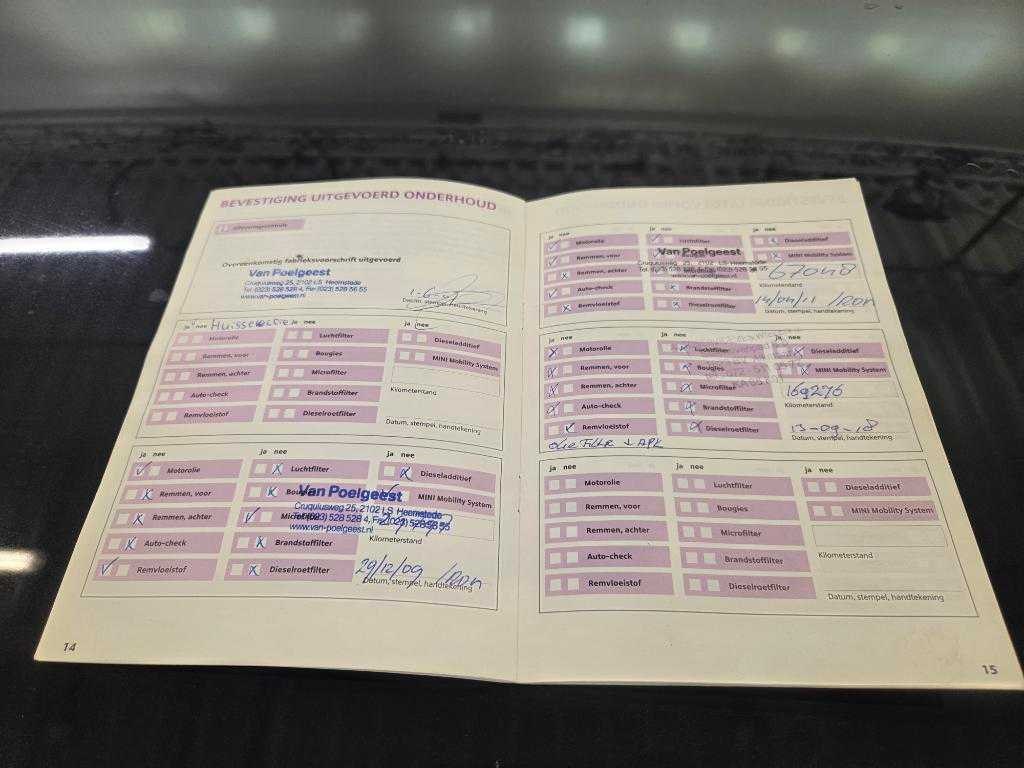 BEVESTIGING UITGEVOERD ONDERHOUD
Afleveringscontrole
Overeenkomstig fabrieksvoorschrift uitgevoerd
Van Poelgeest
Cruquiusweg 25, 2102 LS Heemstede
Tel.(023) 528 528 4, Fax(023) 528 56 55
www.van-poelgeest.nl
Datum, stempel, handtekening
ja nee ja nee ja nee
Motorolie Luchtfilter Dieseladditief
Remmen, voor Bougies MINI Mobility System
Remmen, achter Microfilter
Auto-check Brandstoffilter Kilometerstand
Remvloeistof Dieselroetfilter
Datum, stempel, handtekening
ja nee ja nee ja nee
Motorolie Luchtfilter Dieseladditief
Remmen, voor Bougies MINI Mobility System
Van Poelgeest
Cruquiusweg 25, 2102 LS Heemstede
Tel.(023) 528 528 4, Fax(023) 528 56 55
www.van-poelgeest.nl
Remmen, achter Microfilter
Auto-check Brandstoffilter Kilometerstand
Remvloeistof Dieselroetfilter 29/12/09
Datum, stempel, handtekening
14
ja nee
Motorolie Luchtfilter Dieseladditief
Remmen, voor MINI Mobility System
Van Poelgeest
Cruquiusweg 25, 2102 LS Heemstede
Remmen, achter 67048
Auto-check Brandstoffilter Kilometerstand
Remvloeistof Dieselroetfilter 14/04/11
Datum, stempel, handtekening
ja nee ja nee ja nee
Motorolie Luchtfilter Dieseladditief
Remmen, voor Bougies MINI Mobility System
Remmen, achter Microfilter 169276
Auto-check Brandstoffilter Kilometerstand
Remvloeistof Dieselroetfilter 13-09-18
Datum, stempel, handtekening
olie Filter + APK
ja nee ja nee ja nee
Motorolie Luchtfilter Dieseladditief
Remmen, voor Bougies MINI Mobility System
Remmen, achter Microfilter
Auto-check Brandstoffilter Kilometerstand
Remvloeistof Dieselroetfilter
Datum, stempel, handtekening
15